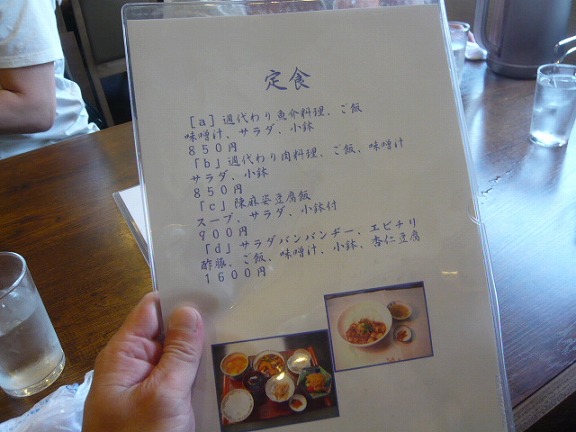 定食
［a］週代わり魚介料理、ご飯
味噌汁、サラダ、小鉢
８５０円
「b」週代わり肉料理、ご飯、味噌汁
サラダ、小鉢
８５０円
「c」陳麻婆豆腐飯
スープ、サラダ、小鉢付
９００円
「d」サラダバンバンヂー、エビチリ
酢豚、ご飯、味噌汁、小鉢、杏仁豆腐
１６００円